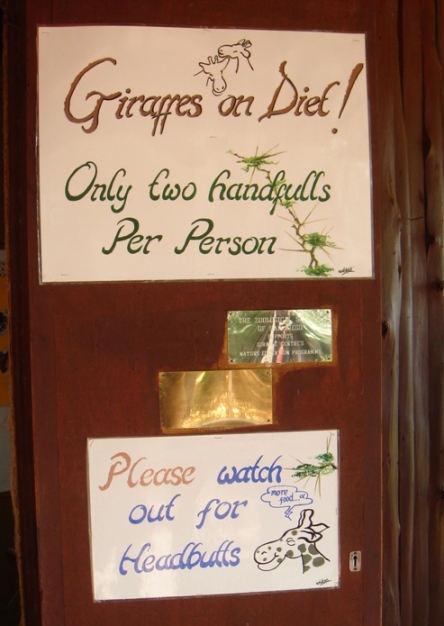 Giraffes on Diet!
Only two handfulls
Per Person
THE ZOOLOGICAL
OF SAN DIEGO
SUPPORTS
CENTRES
NATURE EDUCATION PROGRAMME
Please watch
out for
Headbutts
more
food...